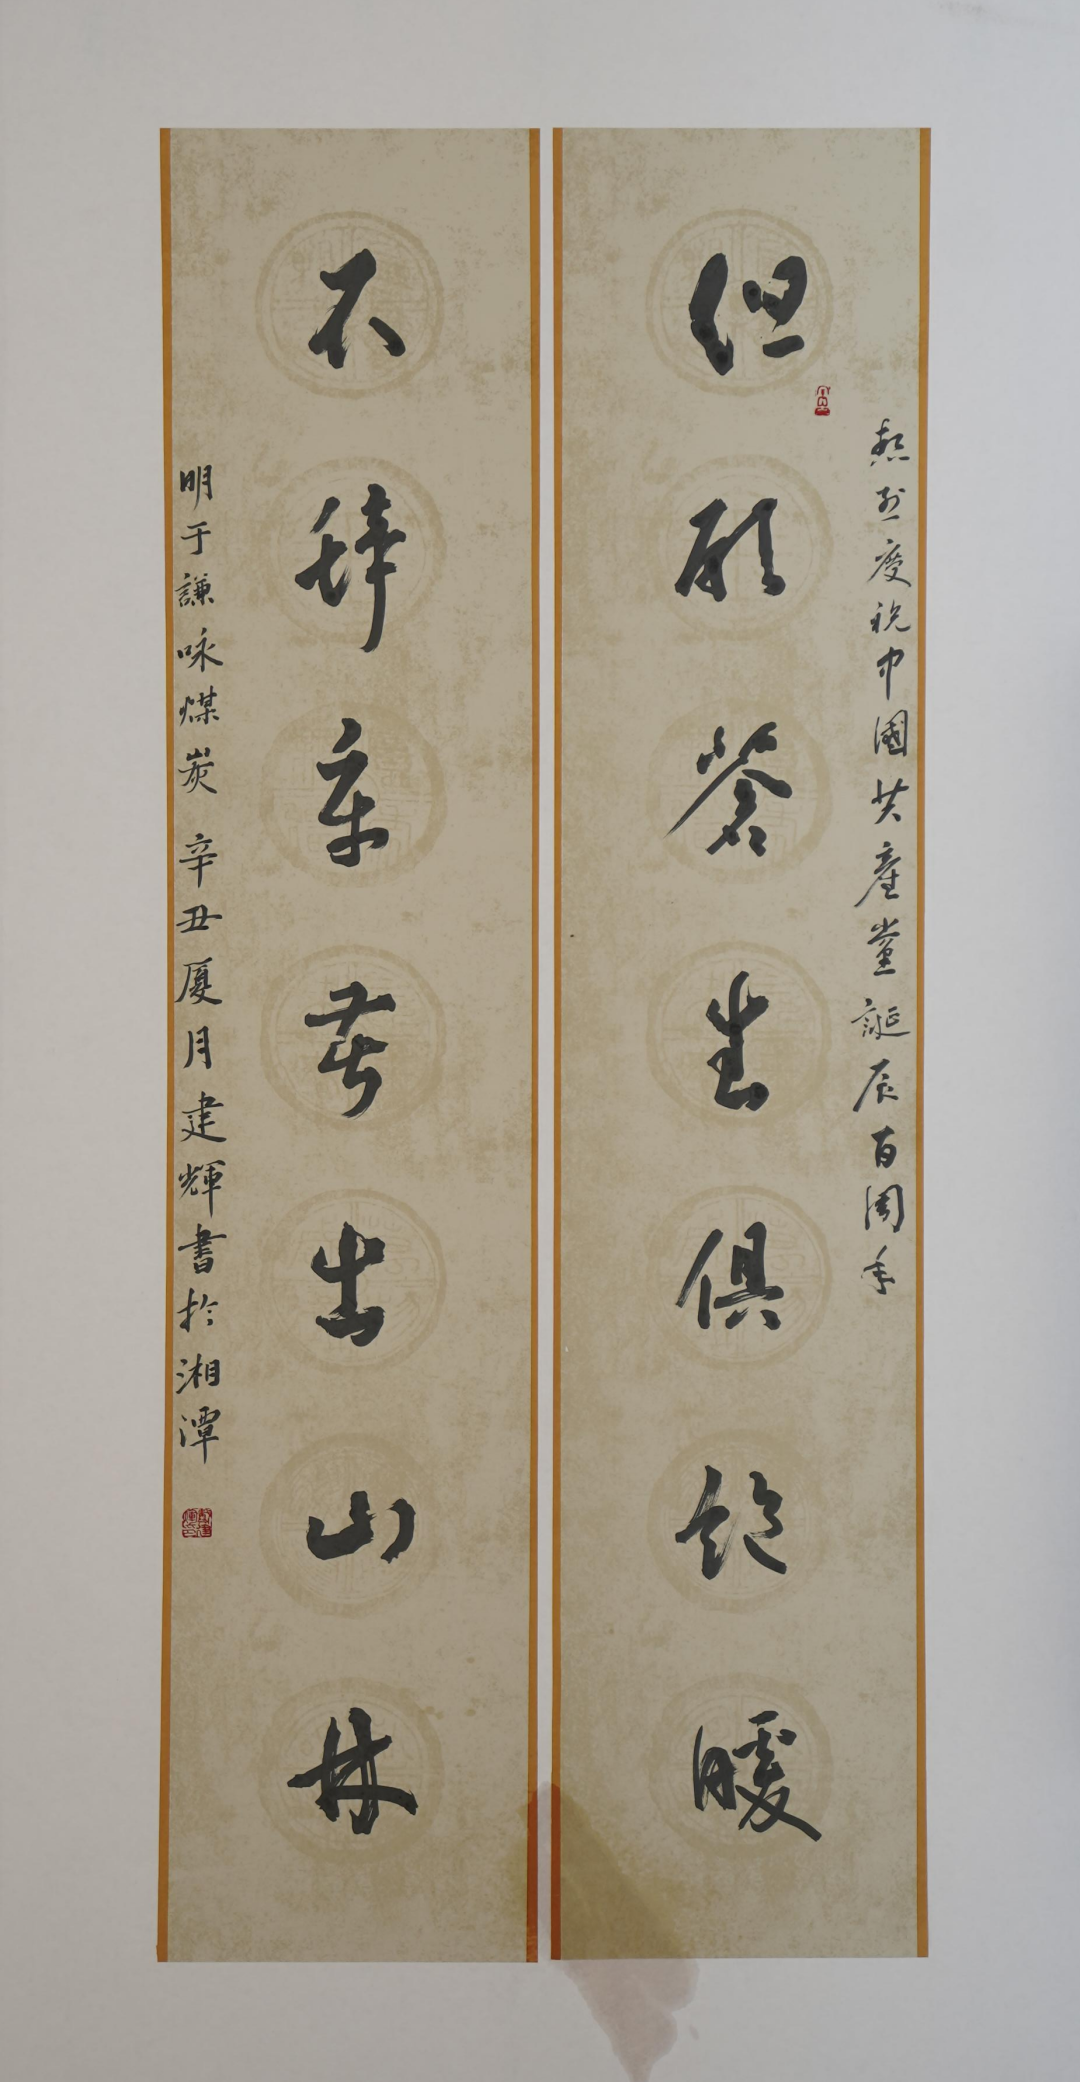 熱烈慶祝中國共產黨誕辰百周年
但願蒼生俱飽暖
不辞辛苦出山林
明于謙咏煤炭 辛丑夏月建輝書於湘潭